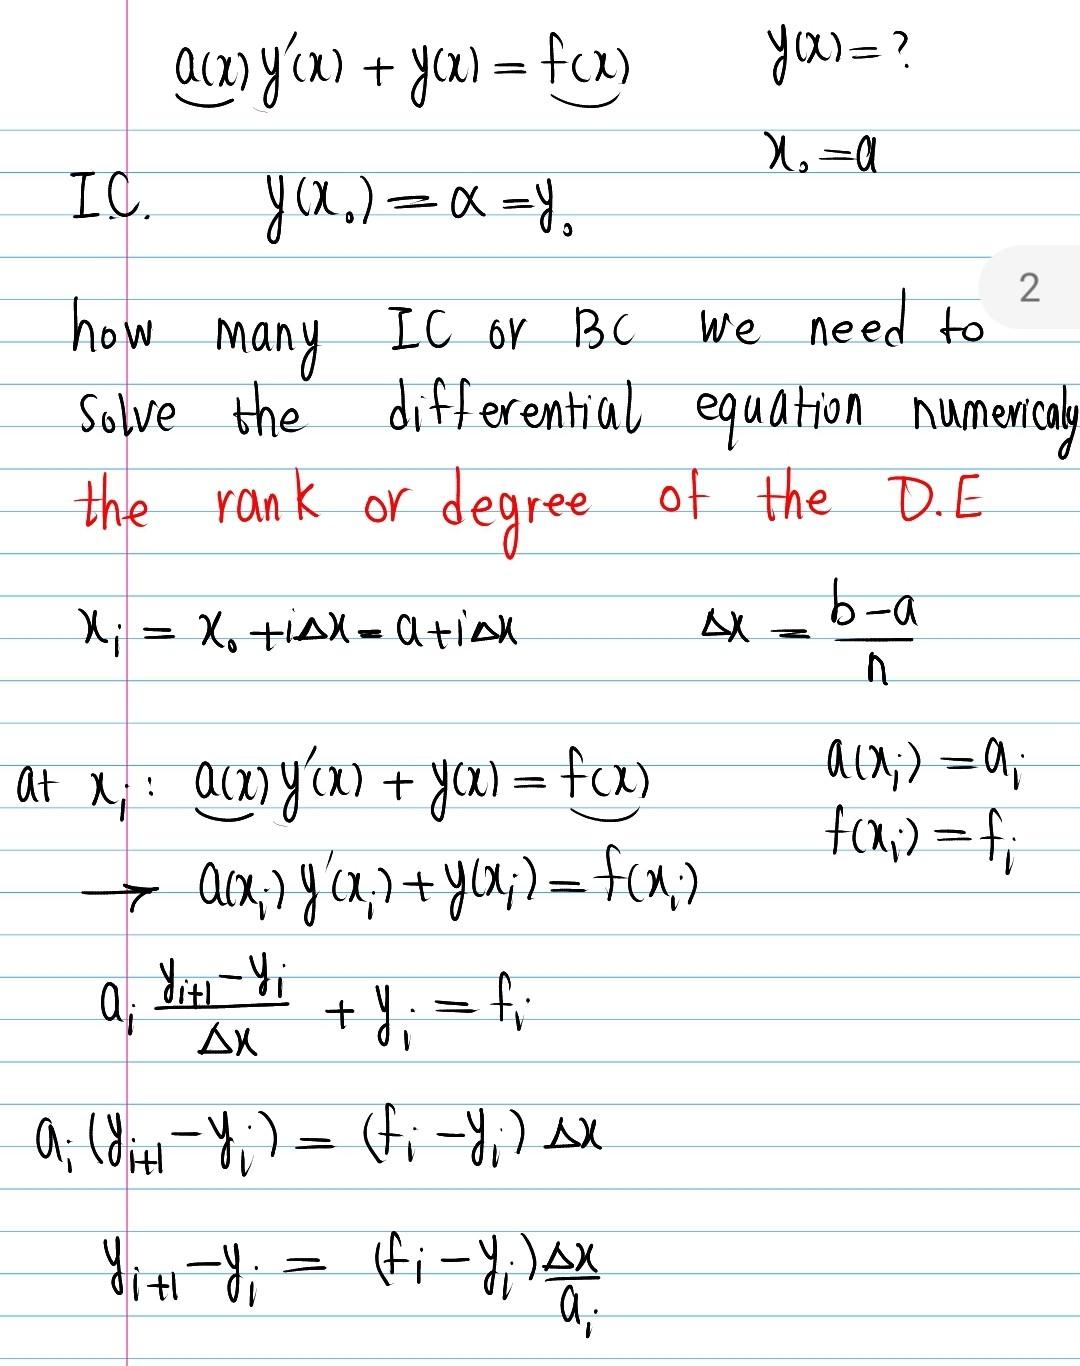 a(x) y′(x) + y(x) = f(x)    y(x) = ?
x₀ = a
I.C.    y(x₀) = α = y₀
2
how many IC or BC we need to
solve the differential equation numericaly
the rank or degree of the D.E
xᵢ = x₀ + iΔx = a + iΔx    Δx = (b-a)/n
at xᵢ: a(x) y′(x) + y(x) = f(x)    a(xᵢ) = aᵢ
f(xᵢ) = fᵢ
→ a(xᵢ) y′(xᵢ) + y(xᵢ) = f(xᵢ)
aᵢ (yᵢ₊₁ - yᵢ)/Δx + yᵢ = fᵢ
aᵢ (yᵢ₊₁ - yᵢ) = (fᵢ - yᵢ) Δx
yᵢ₊₁ - yᵢ = (fᵢ - yᵢ) Δx/aᵢ